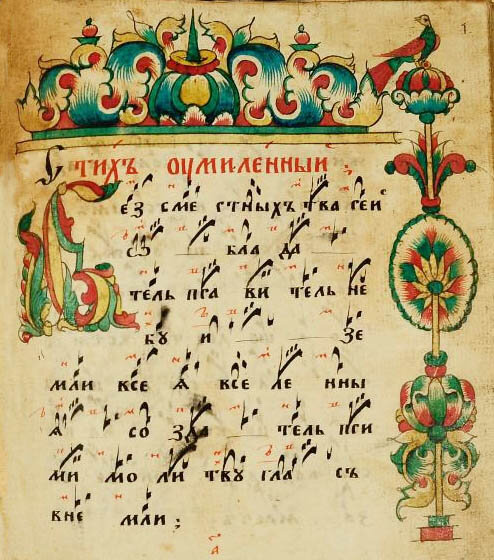 Стихъ оумиленный ;
Без сме ртныхъ тва рей
ѡ бла да
тель пра ви тель не
бу и зе
мли все я все ле нны
я со зда тель при
ми мо ли тву гла съ
вне мли ;